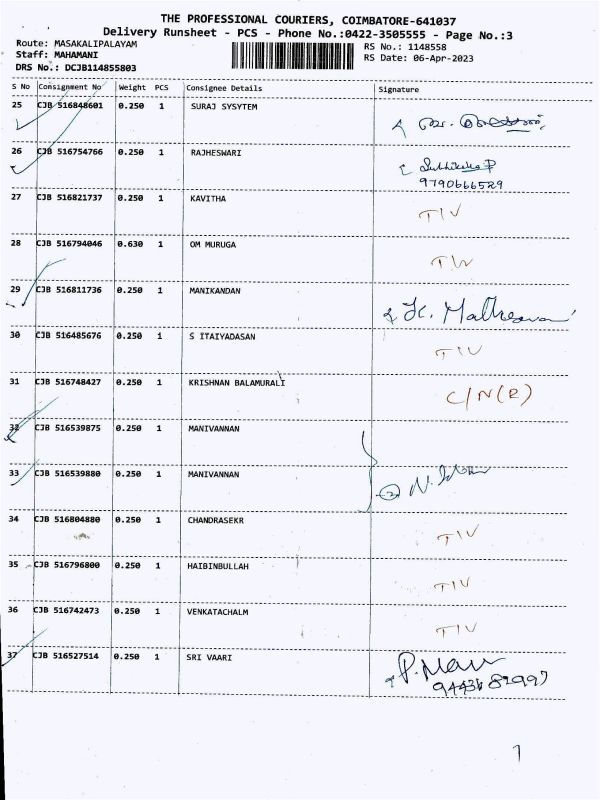 THE PROFESSIONAL COURIERS, COIMBATORE-641037
Delivery Runsheet - PCS - Phone No.:0422-3505555 - Page No.:3
Route: MASAKALIPALAYAM
Staff: MAHAMANI
DRS No.: DCJB114855803
RS No.: 1148558
RS Date: 06-Apr-2023
S No Consignment No Weight PCS Consignee Details Signature
25 CJB 516848601 0.250 1 SURAJ SYSYTEM
26 CJB 516754766 0.250 1 RAJHESWARI
9790666529
27 CJB 516821737 0.250 1 KAVITHA T/V
28 CJB 516794046 0.630 1 OM MURUGA
29 CJB 516811736 0.250 1 MANIKANDAN
30 CJB 516485676 0.250 1 S ITAIYADASAN T/V
31 CJB 516748427 0.250 1 KRISHNAN BALAMURALI C/N(R)
32 CJB 516539875 0.250 1 MANIVANNAN
33 CJB 516539880 0.250 1 MANIVANNAN
34 CJB 516804880 0.250 1 CHANDRASEKR T/V
35 CJB 516796800 0.250 1 HAIBINBULLAH T/V
36 CJB 516742473 0.250 1 VENKATACHALM T/V
37 CJB 516527514 0.250 1 SRI VAARI
1